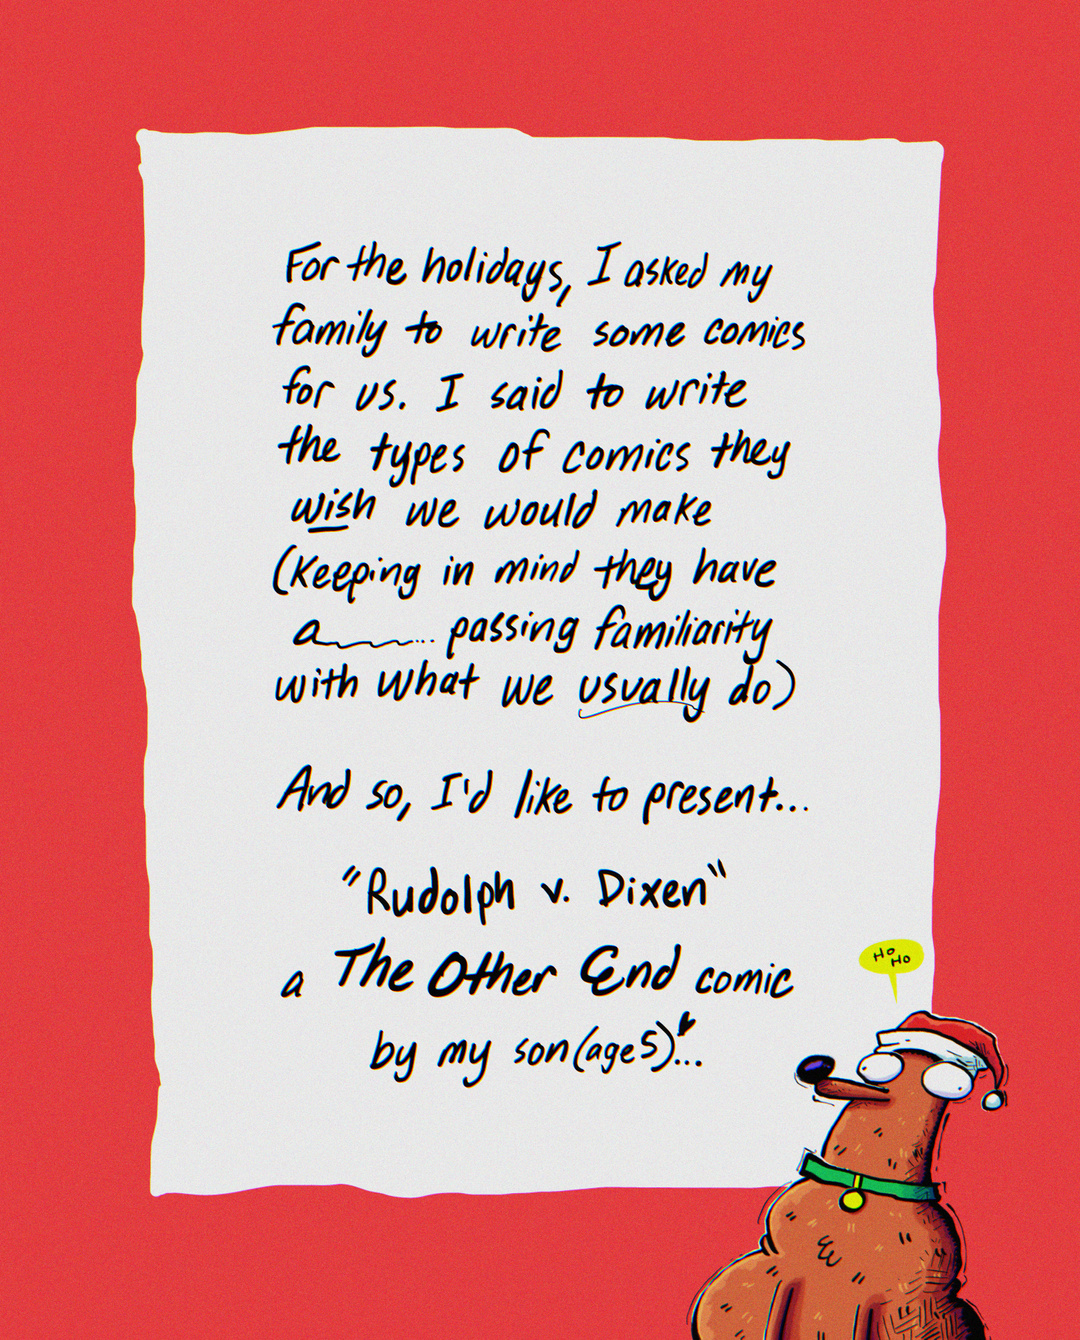 For the holidays, I asked my
family to write some comics
for us. I said to write
the types of comics they
wish we would make
(Keeping in mind they have
a... passing familiarity
with what we usually do)
And so, I'd like to present...
"Rudolph v. Dixen"
a The Other End comic
by my son (age 5)...
HO
HO